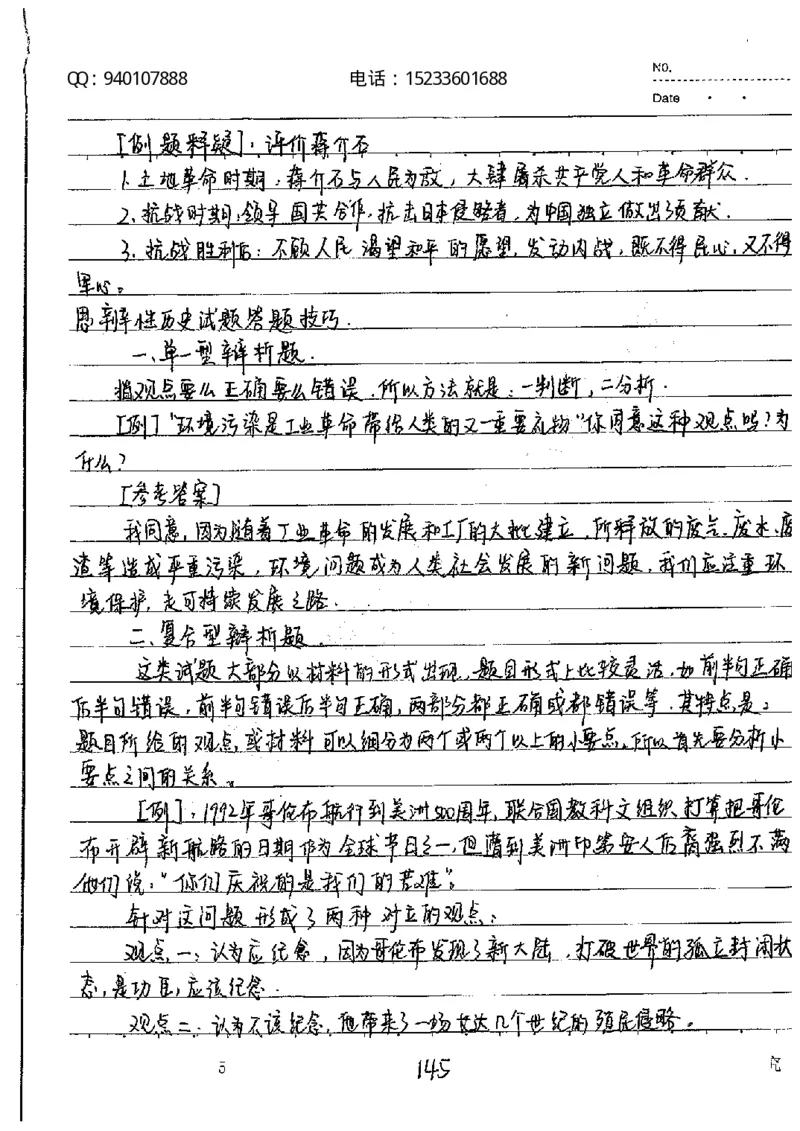 QQ：940107888
电话：15233601688
NO.
Date
[例题释疑]：评价蒋介石
1. 土地革命时期：蒋介石与人民为敌，大肆屠杀共产党人和革命群众.
2. 抗战时期：领导国共合作，抗击日本侵略者，为中国独立做出了贡献.
3. 抗战胜利后：不顾人民渴望和平的愿望，发动内战，既不得民心，又不得
军心。
思辨性历史试题答题技巧.
一、单一型辩析题.
指观点要么正确要么错误，所以方法就是：一判断，二分析.
[例]“环境污染是工业革命带给人类的又一重要礼物”你同意这种观点吗？为
什么？
[参考答案]
我同意，因为随着工业革命的发展和工厂的大批建立，所释放的废气、废水、废
渣等造成严重污染，环境问题成为人类社会发展的新问题，我们应注重环
境保护，走可持续发展之路.
二、复合型辩析题.
这类试题大部分以材料的形式出现，题目形式上比较灵活，如前半句正确
后半句错误，前半句错误后半句正确，两部分都正确或都错误等. 其特点是：
题目所给的观点或材料可以细分为两个或两个以上的小要点，所以首先要分析小
要点之间的关系。
[例]：1992年哥伦布航行到美洲500周年，联合国教科文组织打算把哥伦
布开辟新航路的日期作为全球节日之一，但遭到美洲印第安人后裔强烈不满
他们说：“你们庆祝的是我们的苦难”。
针对这问题形成了两种对立的观点：
观点一：认为应纪念，因为哥伦布发现了新大陆，打破世界的孤立封闭状
态，是功臣，应该纪念.
观点二：认为不该纪念，他带来了一场长达几个世纪的殖民侵略。
5
145